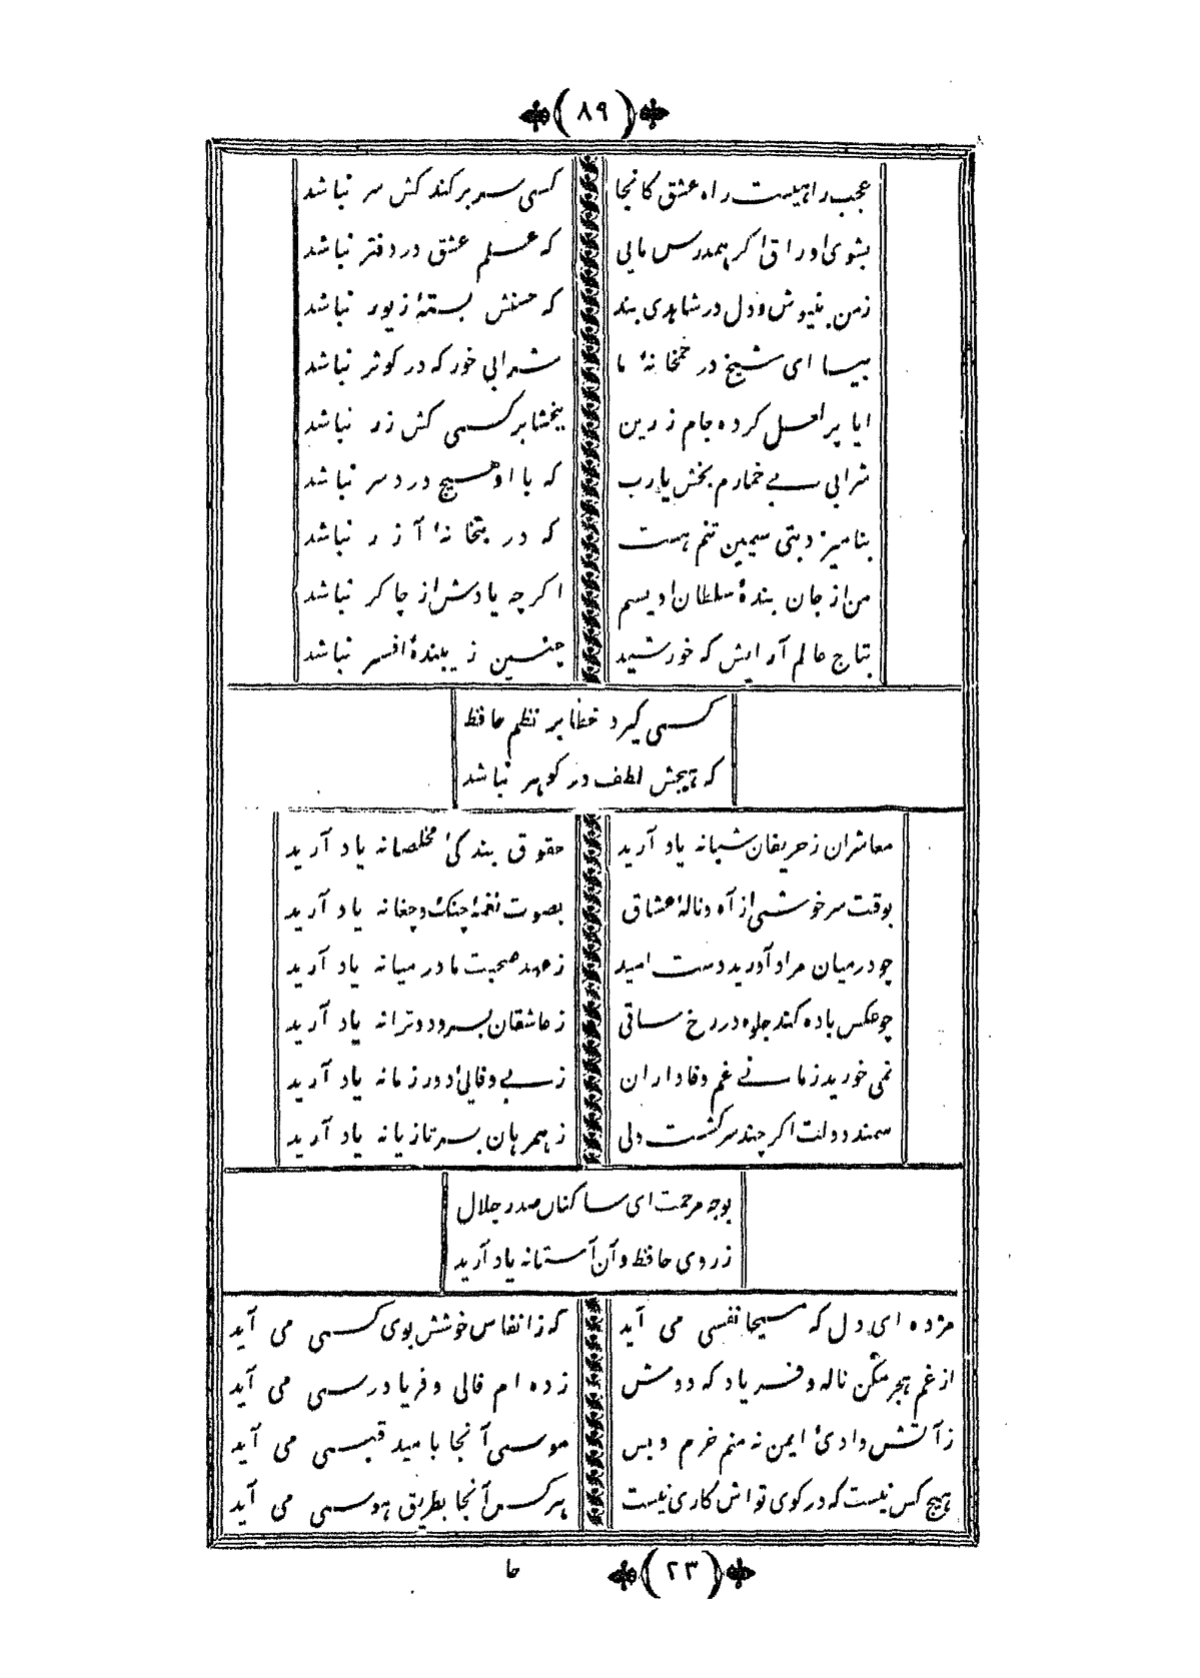 (٨٩)
عجب راهیست راه عشق کانجا کسی سر برکند کش سر نباشد
بشوی اوراق اکر همدرس مایی که علم عشق در دفتر نباشد
زمن بنیوش و دل در شاهدی بند که حسنش بستهٔ زیور نباشد
بیا ای شیخ در خمخانهٔ ما شرابی خور که در کوثر نباشد
ایا پر لعل کرده جام زرین ببخشا بر کسی کش زر نباشد
شرابی بی خمارم بخش یارب که با او هیچ درد سر نباشد
بنامیزد بتی سیمین تنم هست که در بتخانهٔ آزر نباشد
من از جان بندهٔ سلطان اویسم اکرچه یادش از چاکر نباشد
بتاج عالم آرایش که خورشید چنین زیبندهٔ افسر نباشد
کسی کیرد خطا بر نظم حافظ
که هیچش لطف در کوهر نباشد
معاشران ز حریفان شبانه یاد آرید حقوق بندکیٔ مخلصانه یاد آرید
بوقت سرخوشی از آه و نالهٔ عشاق بصوت نغمهٔ چنک و چغانه یاد آرید
چو در میان مراد آورید دست امید ز عهد صحبت ما در میانه یاد آرید
چو عکس باده کند جلوه در رخ ساقی ز عاشقان بسرود و ترانه یاد آرید
نمی خورید زمانی غم وفاداران ز بی وفائیٔ دور زمانه یاد آرید
سمند دولت اکر چند سرکشست ولی ز همرهان بسر تازیانه یاد آرید
بوجه مرحمت ای ساکنان صدر جلال
ز روی حافظ و آن آستانه یاد آرید
مژده ای دل که مسیحا نفسی می آید که ز انفاس خوشش بوی کسی می آید
از غم هجر مکن ناله و فریاد که دوش زده ام فالی و فریادرسی می آید
ز آتش وادیٔ ایمن نه منم خرم و بس موسی آنجا بامید قبسی می آید
هیچ کس نیست که در کوی تو اش کاری نیست هر کس آنجا بطریق هوسی می آید
(٢٣) حا